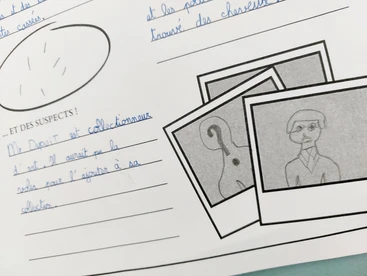 et des
tes cassées.
et les
trouvé des cheveux
... ET DES SUSPECTS !
Mr Dupont est collectionneur
d'art. Il aurait pu le
voler pour l'ajouter à sa
collection.